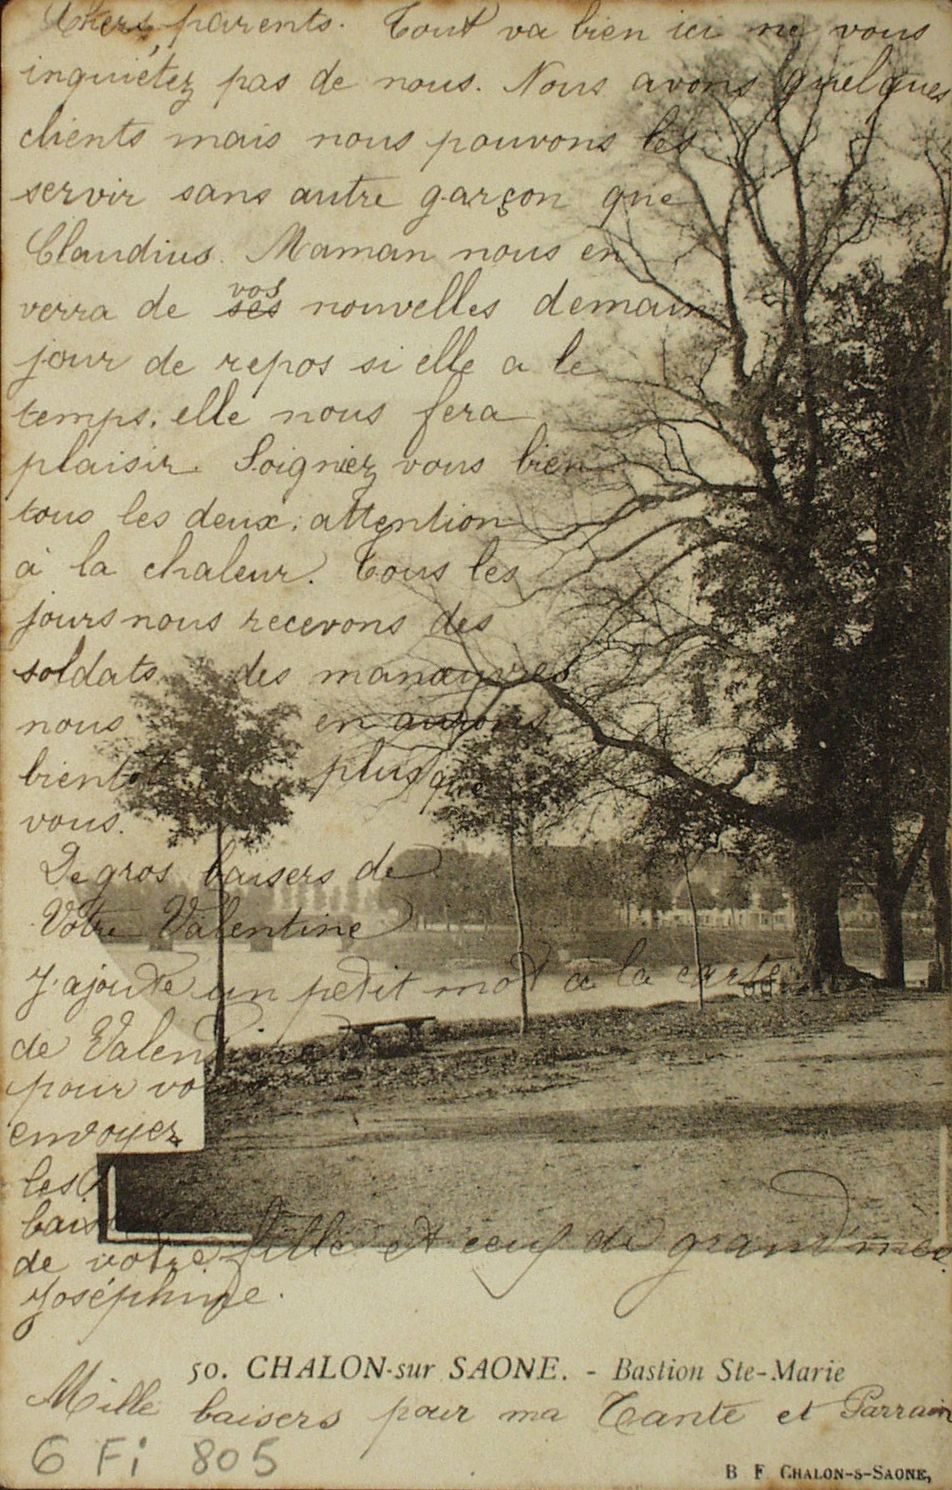 Chers parents. Tout va bien ici ne vous
inquiétez pas de nous. Nous avons quelques
clients mais nous pouvons les
servir sans autre garçon que
Claudius. Maman nous en
verra de ses vos nouvelles demain
jour de repos si elle a le
temps, elle nous fera
plaisir. Soignez vous bien
tous les deux, attention
à la chaleur. Tous les
jours nous recevons des
soldats des manœuvres
nous en aurons
bientôt plus que
vous.
De gros baisers de
Votre Valentine
J'ajoute un petit mot à la carte
de Valentine
pour vous
envoyer
les
baisers
de votre fille et ceux de grand'mère
Joséphine.
50. CHALON-sur SAONE. - Bastion Ste-Marie
Mille baisers pour ma Tante et Parrain
6 Fi 805
B F CHALON-S-SAONE,